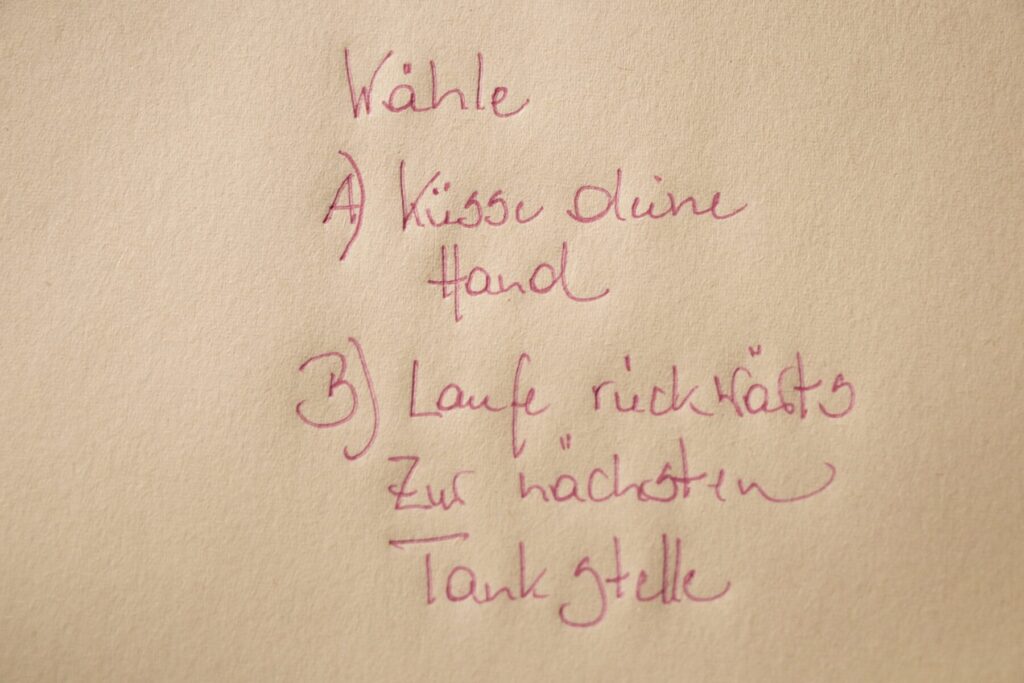 Wähle
A) Küsse deine
Hand
B) Laufe rückwärts
Zur nächsten
Tankstelle